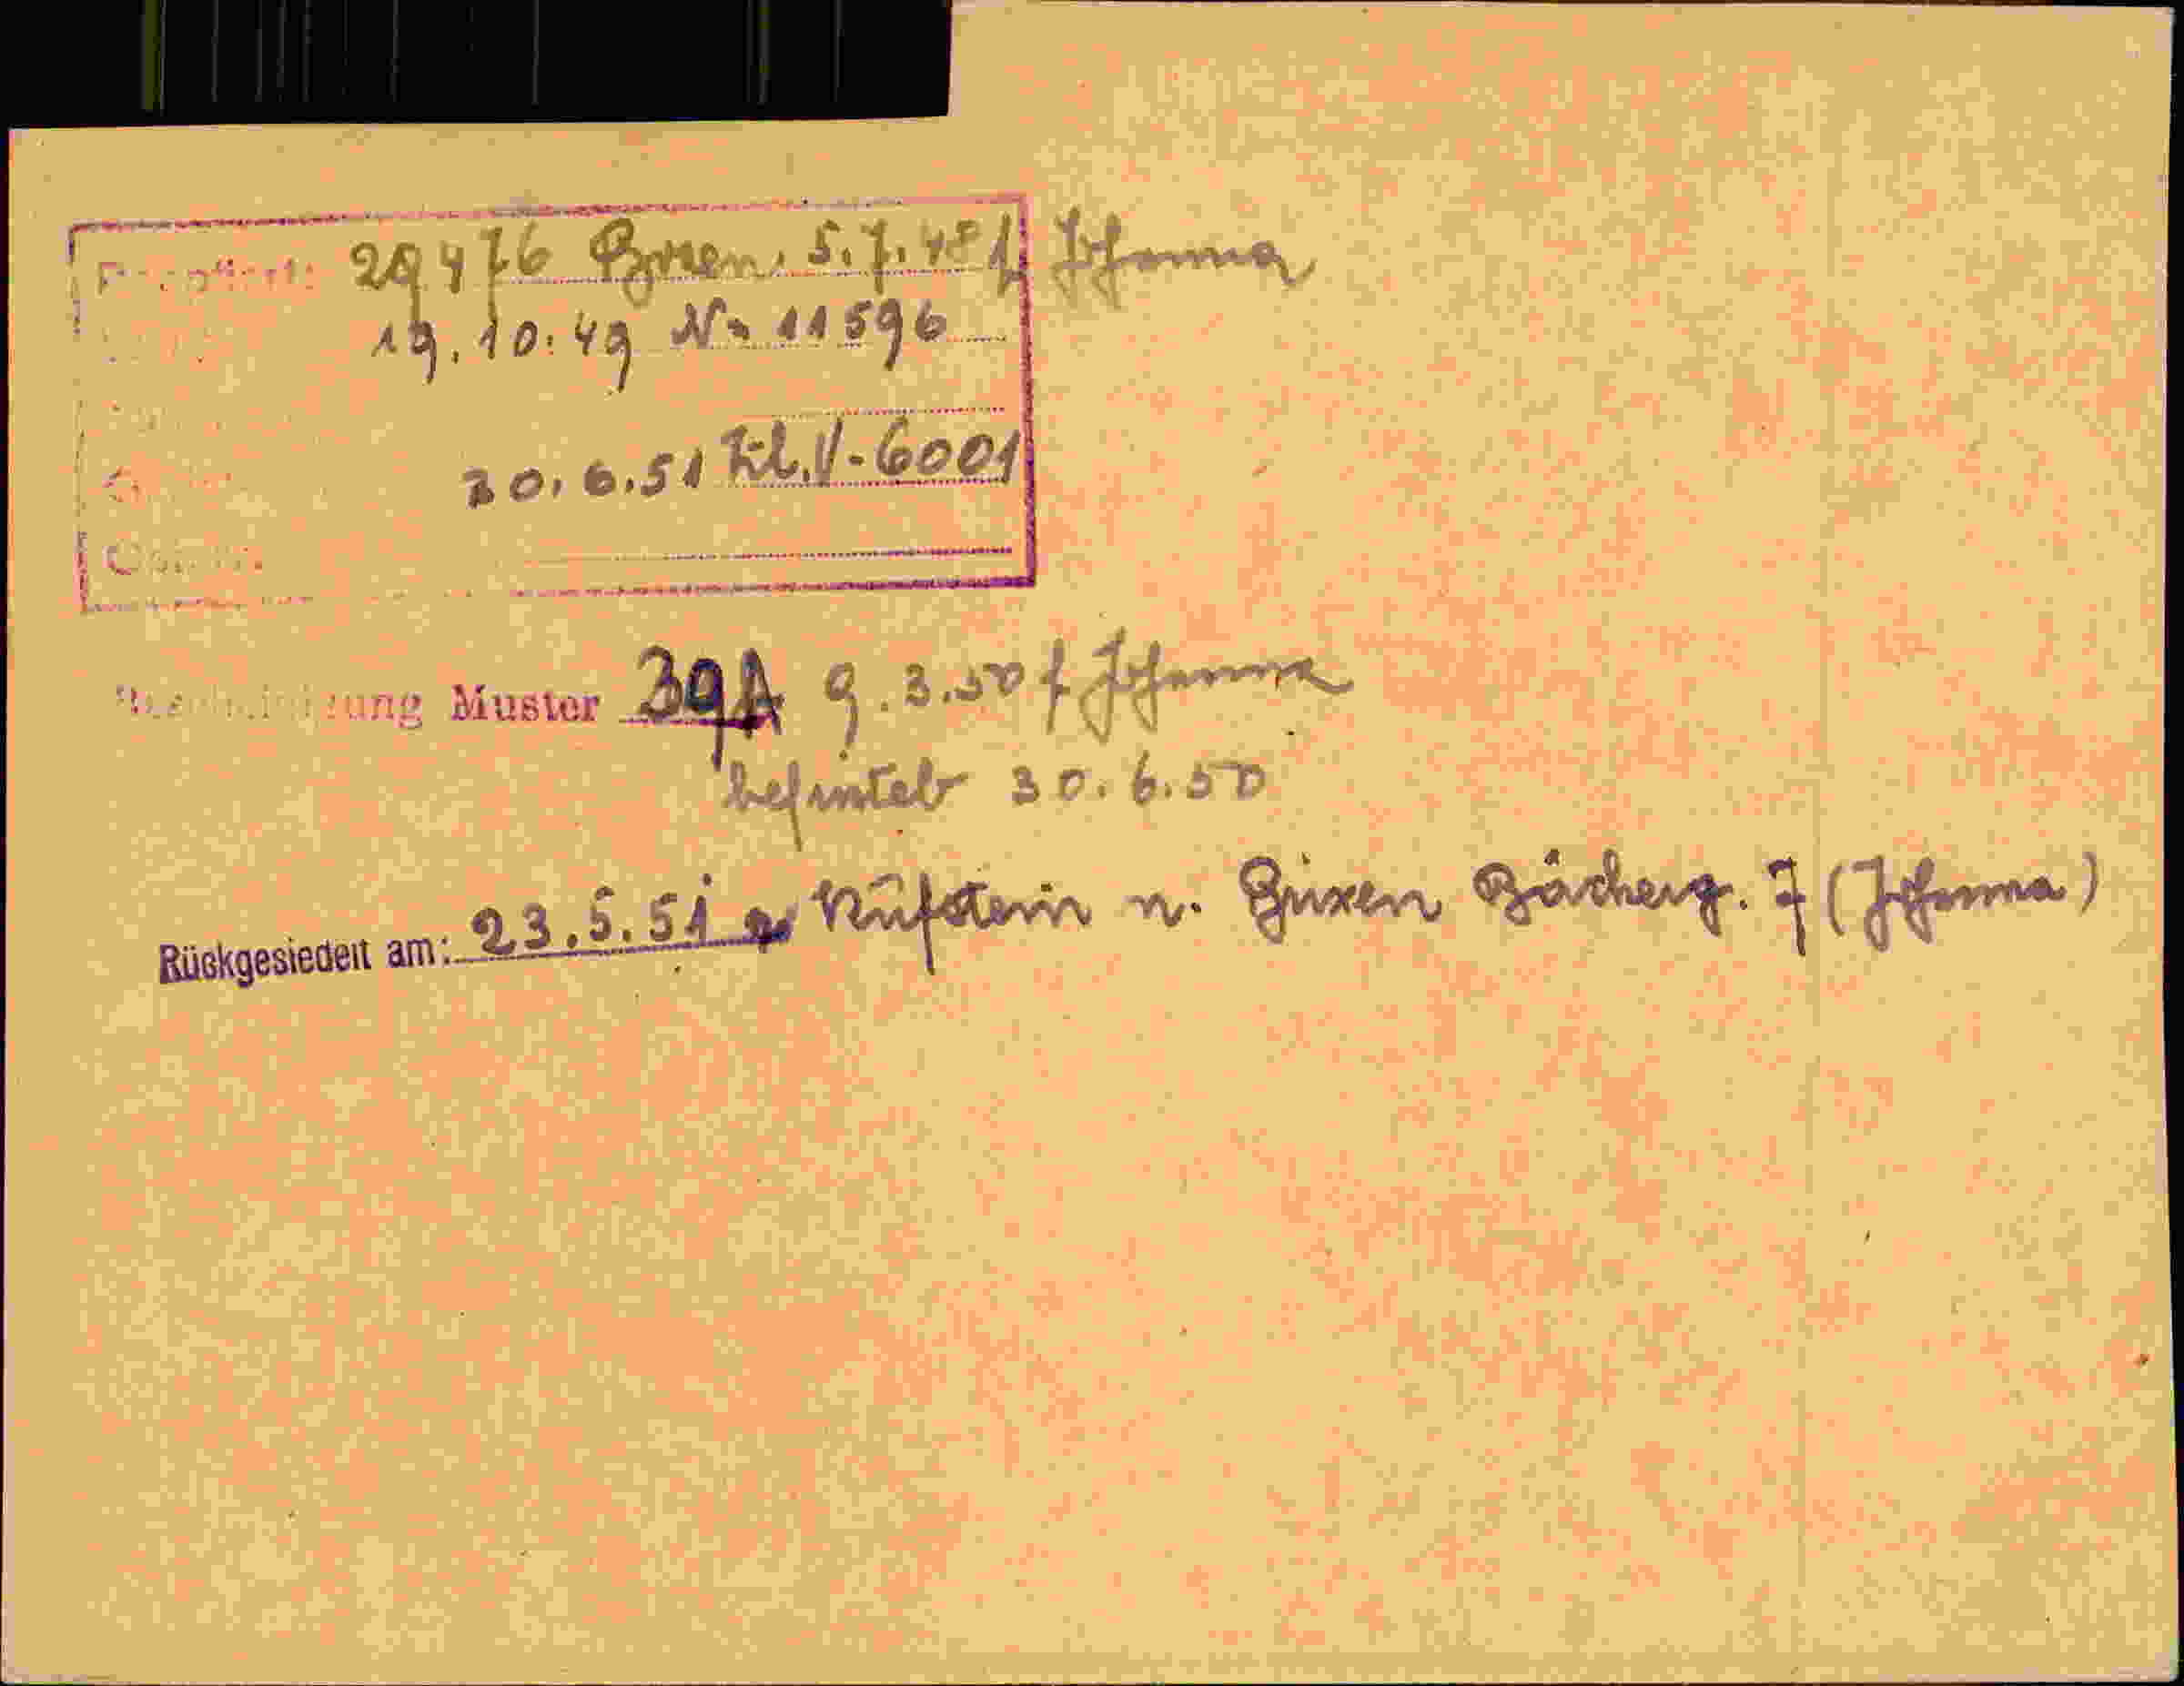 29476 Bozen. 5.7.48 f. Johanna
19.10.49 No 11596
30.6.51 Zl. V-6001
Bescheinigung Muster 39A 9.3.50 f Johanna
befristet 30.6.50
Rückgesiedelt am: 23.5.51 Kufstein n. Brixen Bäckerg. 7 (Johanna)